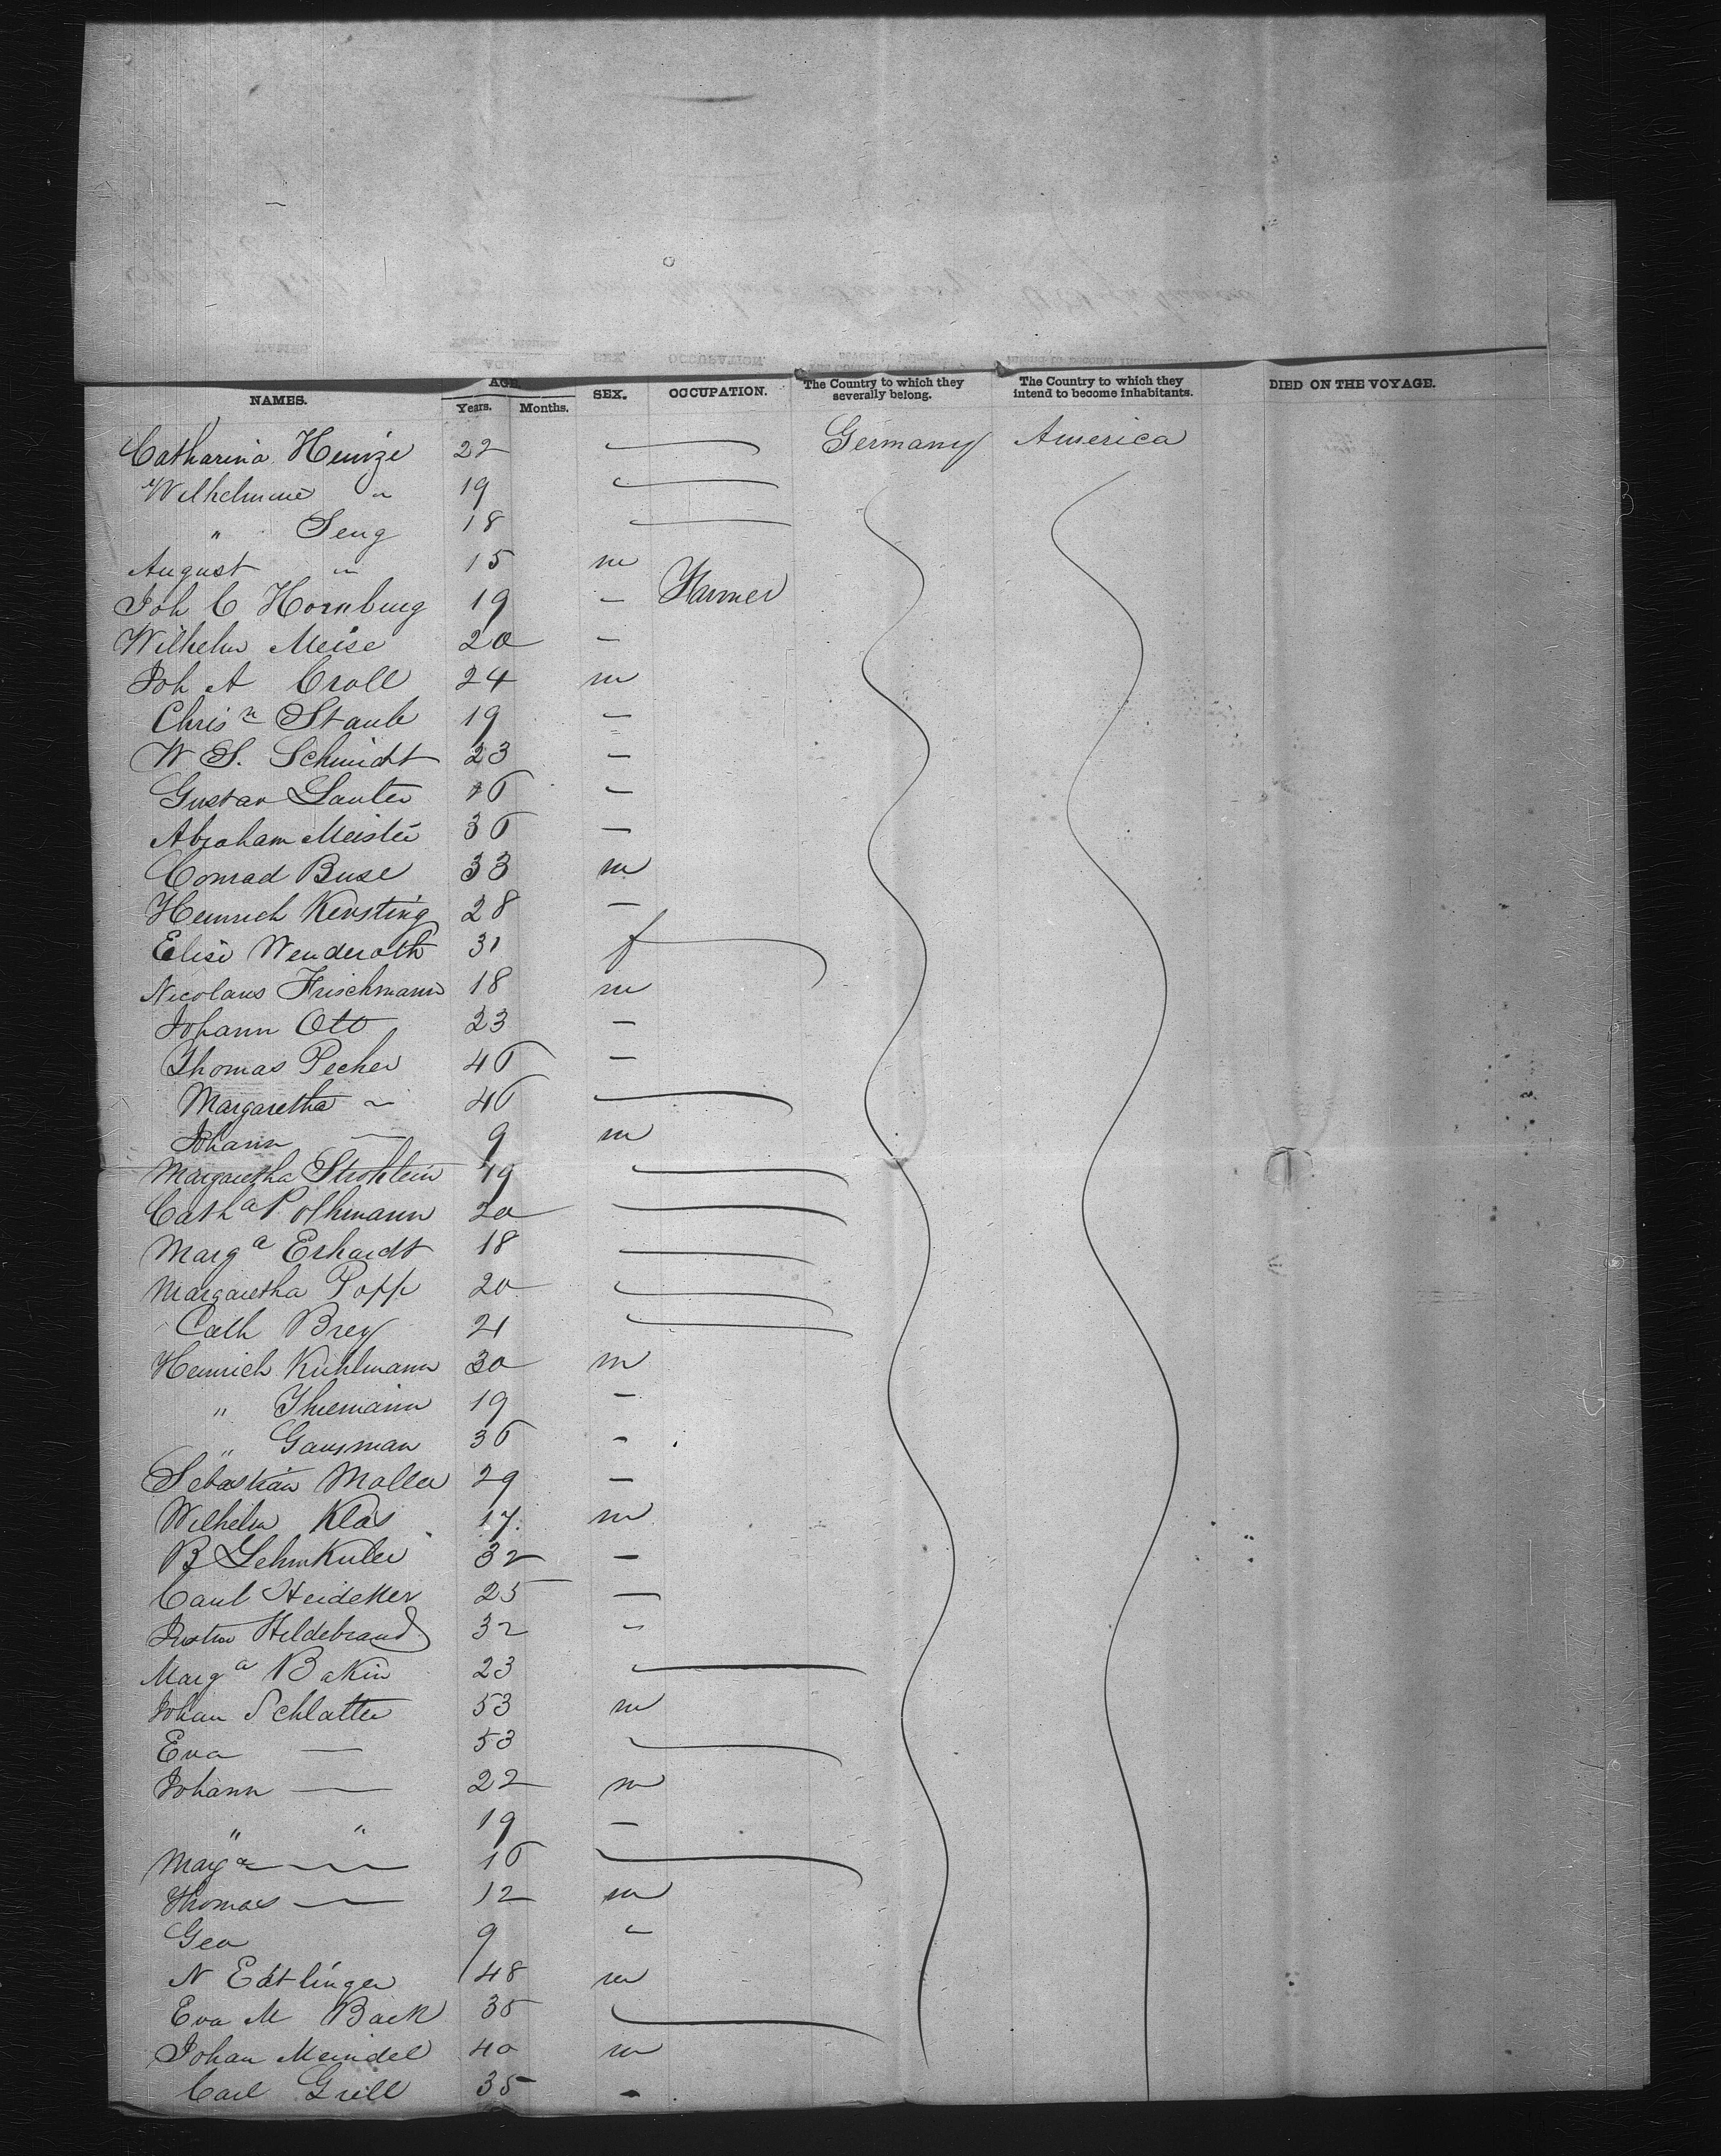 NAMES. AGE. Years. Months. SEX. OCCUPATION. The Country to which they severally belong. The Country to which they intend to become inhabitants. DIED ON THE VOYAGE.
Catharina Heinze 22 Germany America
Wilhelmine " 19
" Seng 18
August " 15 m
Joh C Hornburg 19 — Farmer
Wilhelm Meise 20 —
Joh A Croll 24 m
Chris n Staub 19 —
W S. Schmidt 23 —
Gustav Sauter 16 —
Abraham Meister 36 —
Conrad Buse 33 m
Heinrich Kersting 28 —
Elise Wenderoth 31 f
Nicolaus Frischmann 18 m
Johann Otto 23 —
Thomas Pecher 46 —
Margaretha " 46
Johann — 9 m
Margaretha Strohlein 19
Cath a Pohlmann 20
Marg a Erhardt 18
Margaretha Popp 20
Cath Brey 21
Heinrich Kuhlmann 30 m
" Thiemann 19 —
" Gausman 36 -
Sebastian Moller 29 —
Wilhelm Klas 17. m
B Lehmkuler 32 —
Carl Heideker 25 —
Justus Hildebrand 32 -
Marg a Bakin 23
Johan Schlatter 53 m
Eva — 53
Johann — 22 m
" " 19 —
Marg a — 16
Thomas — 12 m
Geo 9 -
N Edtlinger 48 m
Eva M Back 35
Johan Meindel 40 m
Carl Grill 35 -